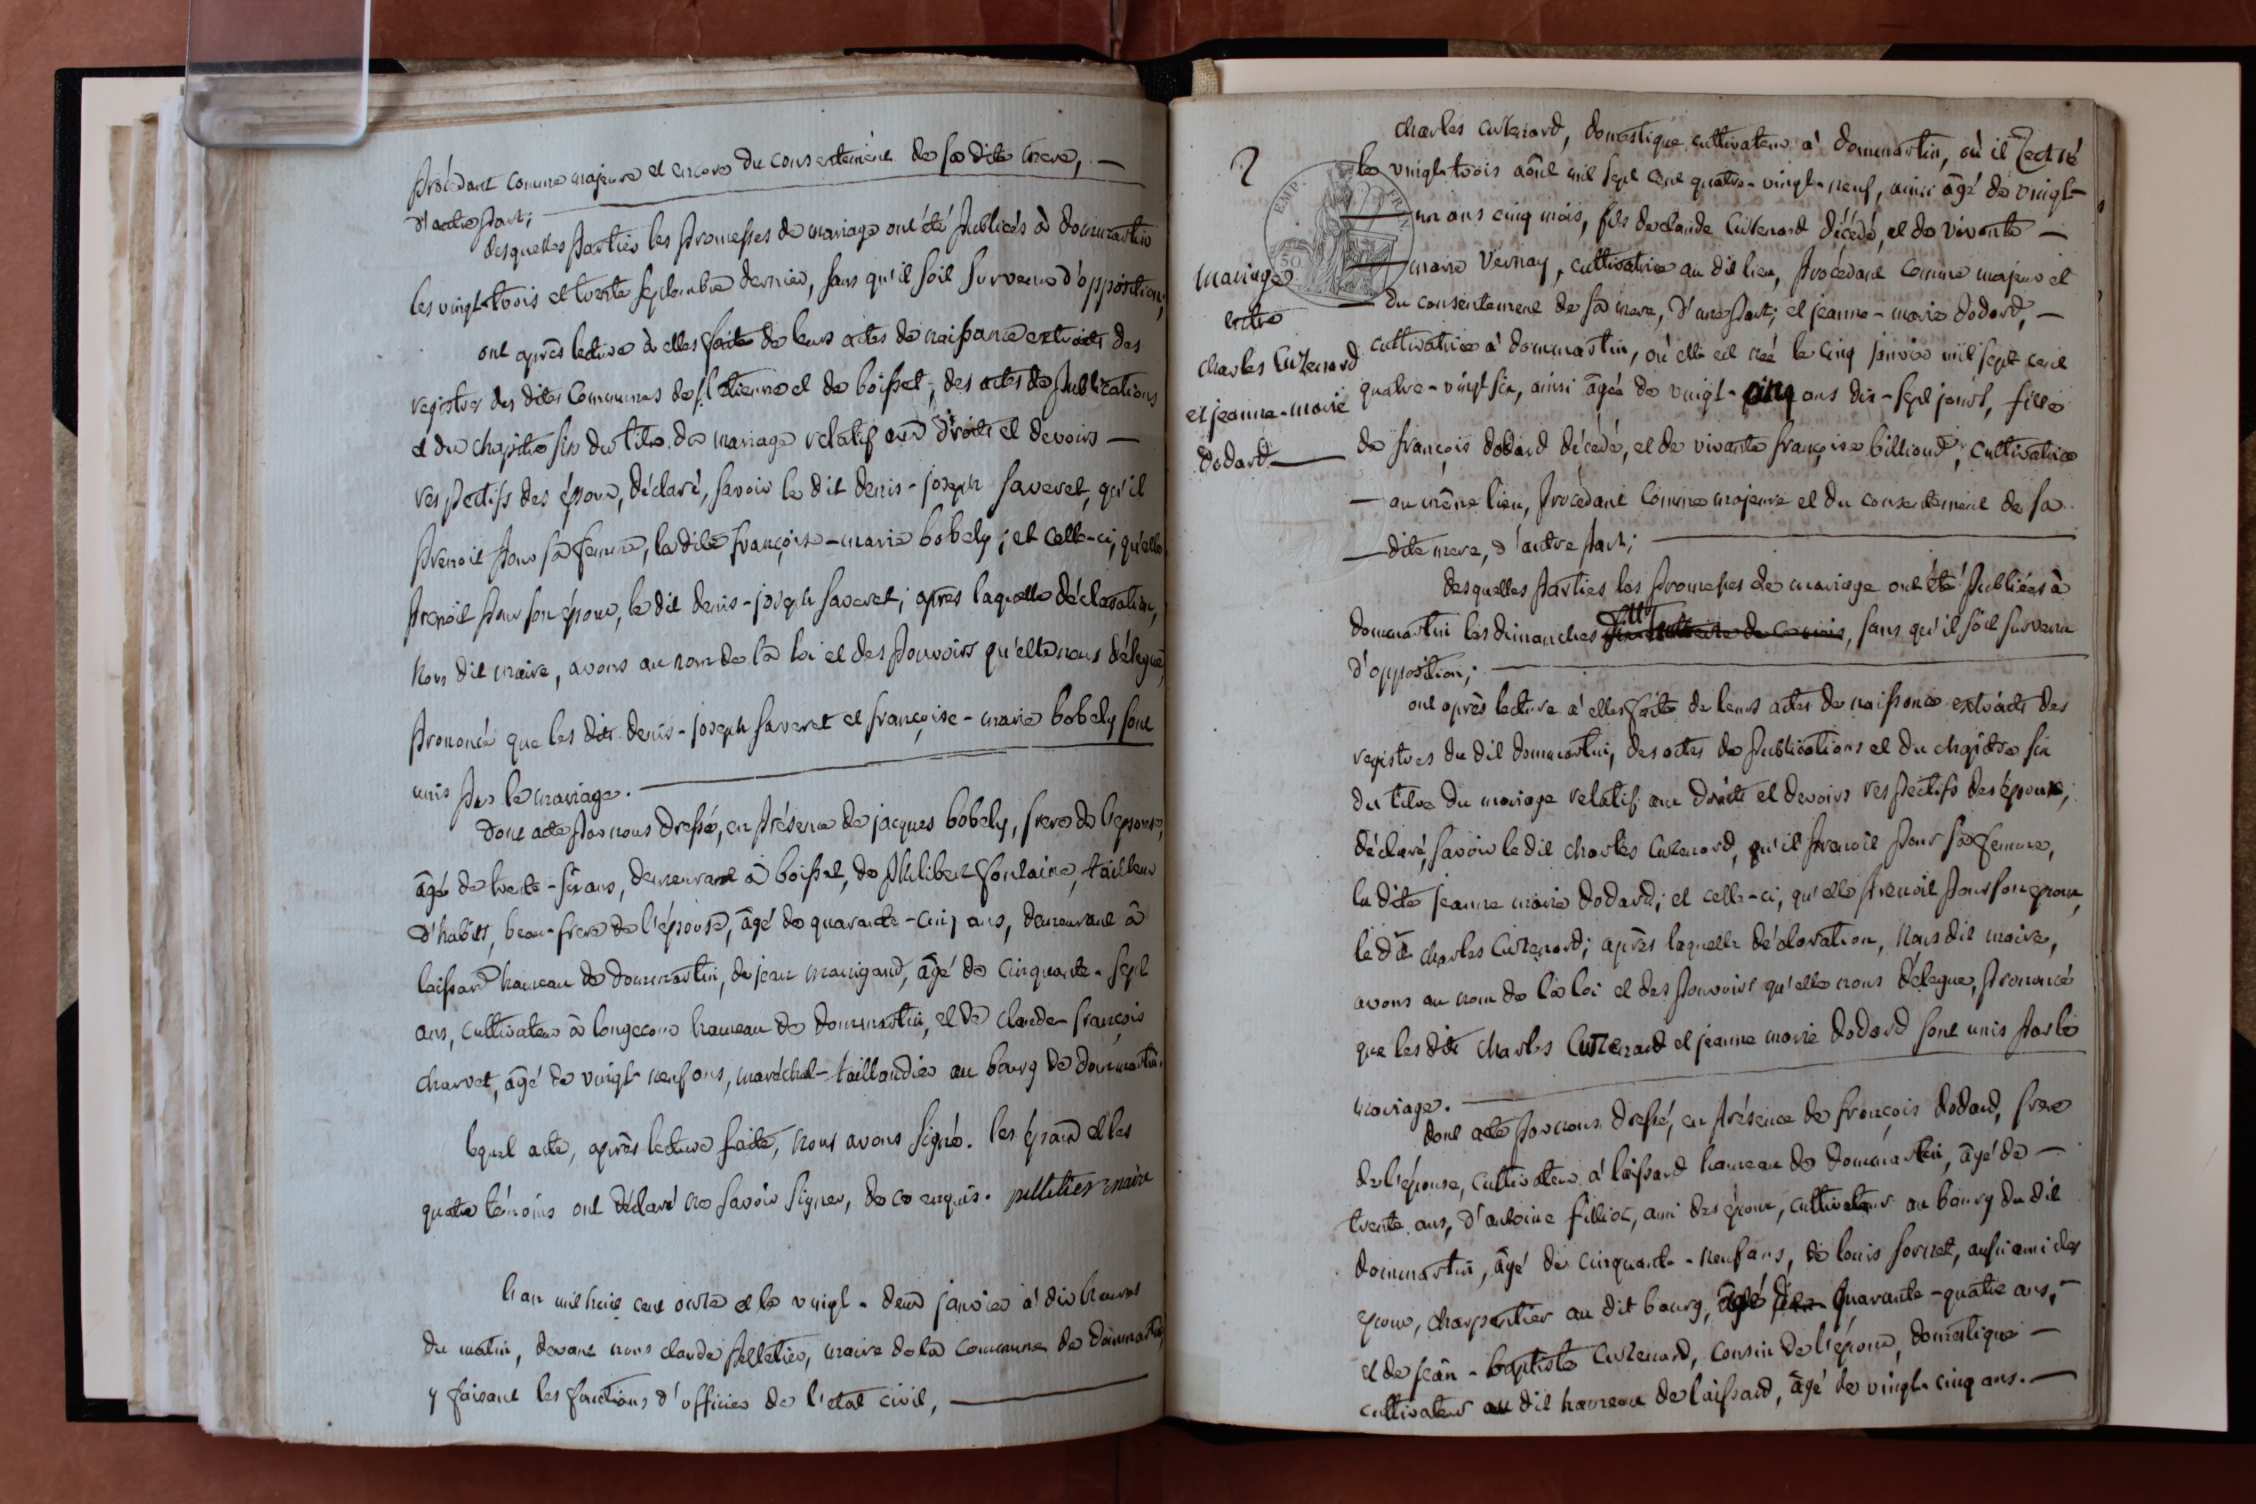 procédant comme majeure et encore du consentement de sa dite mere,
d'autre part;
desquelles parties les promesses de mariage ont été publiées à dommartin
les vingt-trois et trente septembre dernier, sans qu'il soit survenu d'opposition;
ont après lecture à elles faite de leurs actes de naissance extraits des
registres des dites communes de st etienne et de boisset, des actes de publications
et du chapitre six du titre du mariage relatif aux droits et devoirs
respectifs des époux, déclaré, savoir le dit denis-joseph saveret, qu'il
prenoit pour sa femme, la dite françoise-marie bobely; et celle-ci, qu'elle
prenoit pour son époux, le dit denis-joseph saveret; après laquelle déclaration,
Nous dit maire, avons au nom de la loi et des pouvoirs qu'elle nous délegue,
prononcé que les dits denis-joseph saveret et françoise-marie bobely sont
unis par le mariage.
Dont acte par nous dressé, en présence de jacques bobely, frere de l'epouse,
âgé de trente-six ans, demeurant à boisset, de philibert fontaine, tailleur
d'habits, beau-frere de l'épouse, âgé de quarante-cinq ans, demeurant à
laissard hameau de dommartin, de jean manigand, âgé de cinquante-sept
ans, cultivateur à longecour hameau de dommartin, et de claude-françois
charvet, âgé de vingt neuf ans, maréchal-taillandier au bourg de dommartin.
lequel acte, après lecture faite, nous avons signé. les époux et les
quatre témoins ont déclaré ne savoir signer, de ce enquis. pelletier maire
L'an mil huit cent onze et le vingt-deux janvier à dix heures
du matin, devant nous claude pelletier, maire de la commune de dommartin,
y faisant les fonctions d'officier de l'etat civil,
2
EMP. FR
50
mariage
entre
charles Cuzenard
et jeanne-marie
dodard
charles cuzenard, domestique cultivateur à dommartin, où il est né
le vingt-trois août mil sept cent quatre-vingt-neuf, ainsi âgé de vingt-
un ans cinq mois, fils de claude Cuzenard décédé, et de vivante
marie vernay, cultivatrice au dit lieu, procédant comme majeur et
du consentement de sa mere, d'une part; et jeanne-marie dodard,
cultivatrice à dommartin, où elle est née le cinq janvier mil sept cent
quatre-vingt six, ainsi âgée de vingt-cinq ans dix-sept jours, fille
de françois dodard décédé, et de vivante françoise billioud, cultivatrice
au même lieu, procédant comme majeure et du consentement de sa
dite mere, d'autre part;
desquelles parties les promesses de mariage ont été publiées à
dommartin les dimanches, sans qu'il soit survenu
d'opposition;
ont après lecture à elles faite de leurs actes de naissance extraits des
registres du dit dommartin, des actes de publications et du chapitre six
du titre du mariage relatif aux droits et devoirs respectifs des époux,
déclaré, savoir le dit charles Cuzenard, qu'il prenoit pour sa femme,
la dite jeanne marie dodard; et celle-ci, qu'elle prenoit pour son epoux,
le dit charles Cuzenard; après laquelle déclaration, Nous dit maire,
avons au nom de la loi et des pouvoirs qu'elle nous délegue, prononcé
que les dits charles Cuzenard et jeanne marie dodard sont unis par le
mariage.
dont acte par nous dressé, en présence de françois dodard, frere
de l'épouse, cultivateur à laissard hameau de dommartin, âgé de
trente ans, d'antoine filliot, ami des époux, cultivateur au bourg du dit
dommartin, âgé de cinquante-neuf ans, de louis sornet, aussi ami des
epoux, charpentier au dit bourg, âgé de quarante-quatre ans,
et de jean-baptiste Cuzenard, cousin de l'époux, domestique
cultivateur au dit hameau de laissard, âgé de vingt-cinq ans.